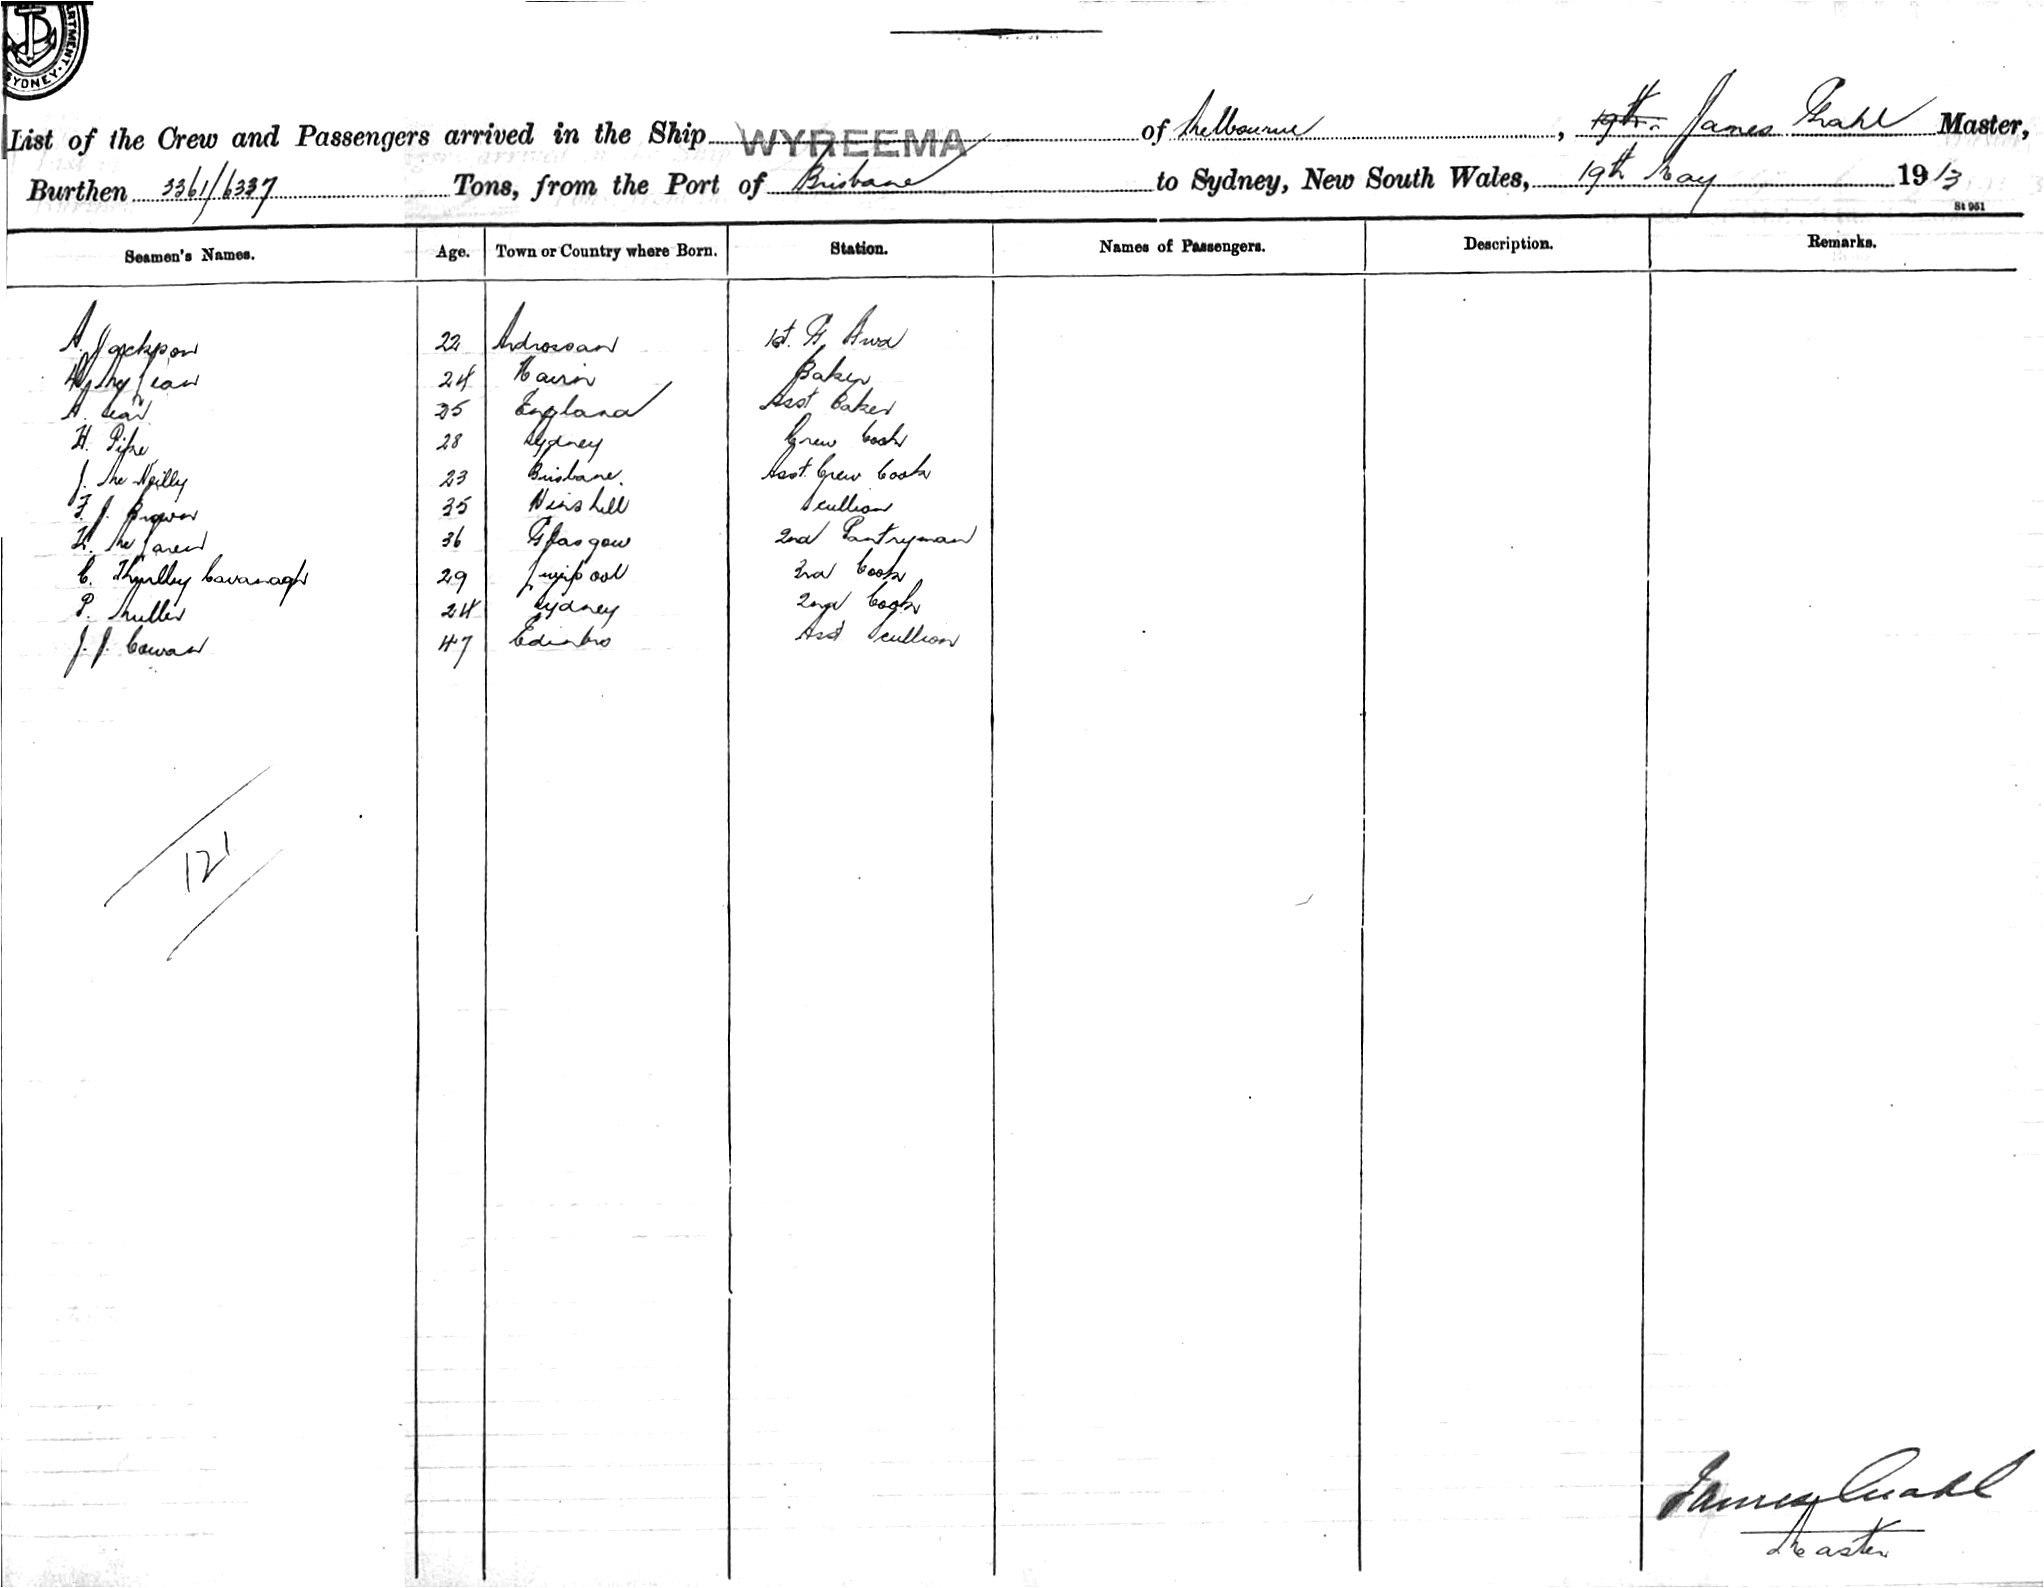 ARTMENT. SYDNEY.
List of the Crew and Passengers arrived in the Ship WYREEMA of Melbourne, 19th. James Master,
Burthen 3361/6337 Tons, from the Port of Brisbane to Sydney, New South Wales, 19th May 1913
St 961
Seamen's Names. Age. Town or Country where Born. Station. Names of Passengers. Description. Remarks.
A. Jackson 22 Ardrossan 1st. G. Stwd
24 Nairn Baker
A. 25 England Asst Baker
H. Pike 28 Sydney Crew Cook
J. McNeilly 23 Brisbane. Asst. Crew Cook
F. J. Brown 35 Scullion
H. McLaren 36 Glasgow 2nd Pantryman
C. Thurlby Cavanagh 29 Liverpool 3rd Cook
P. Muller 24 Sydney 2nd Cook
J. J. Cowan 47 Edinbro Asst Scullion
121
James
Master